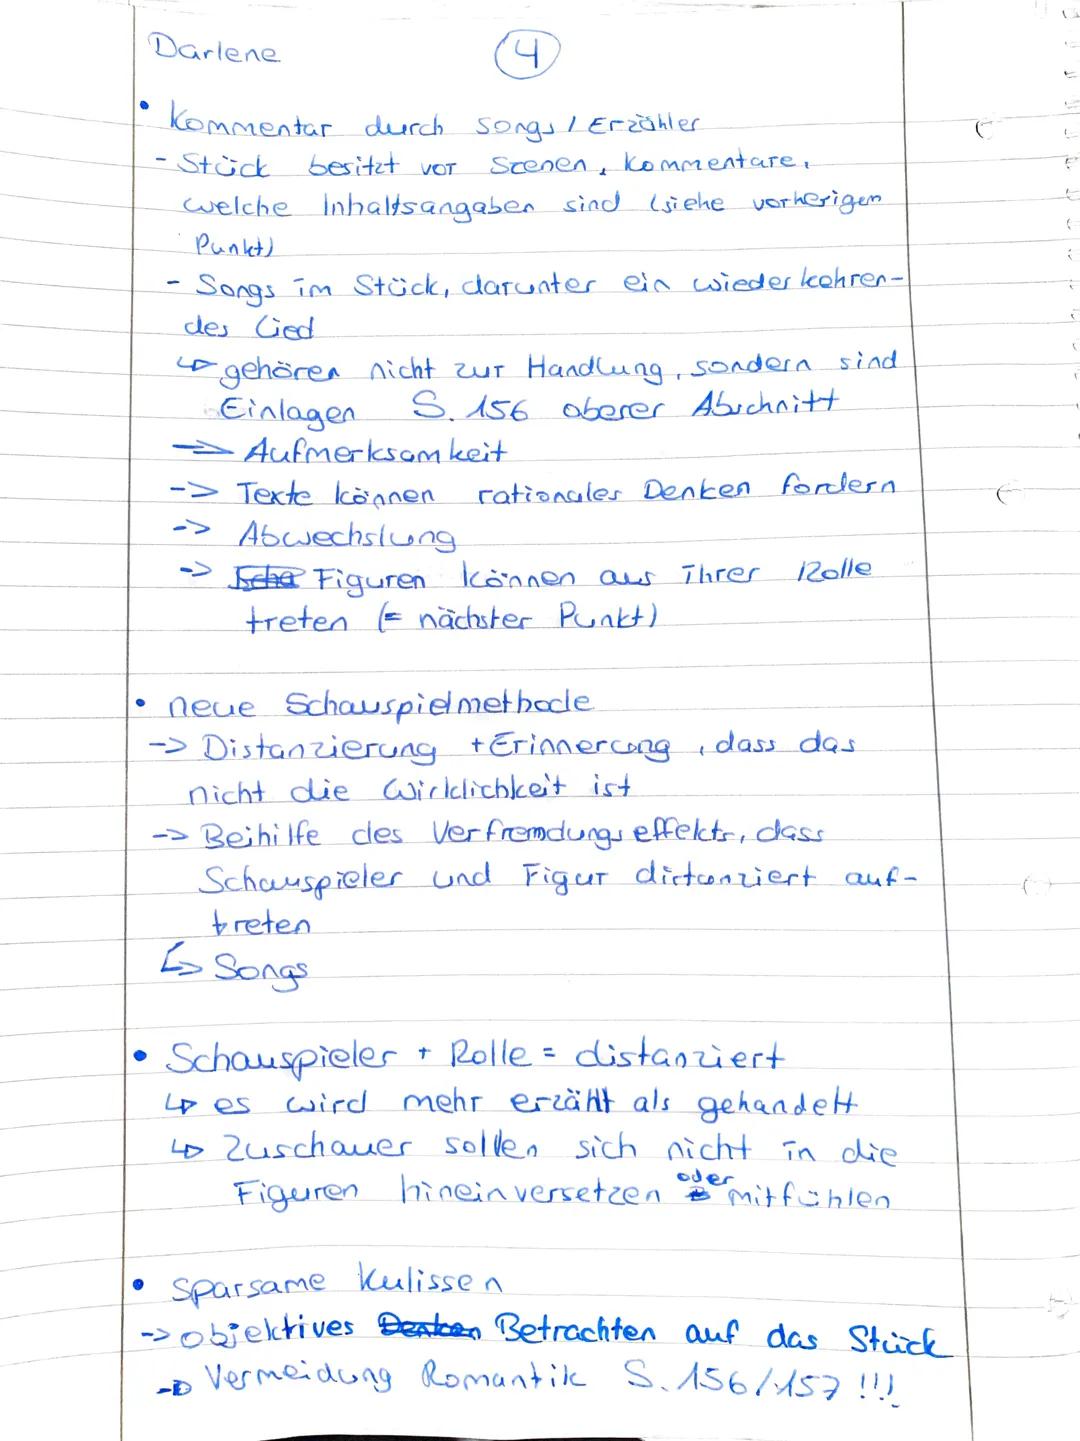 Darlene ④
• Kommentar durch Songs / Erzähler
- Stück besitzt vor Szenen, Kommentare,
welche Inhaltsangaben sind (siehe vorherigen
Punkt)
- Songs im Stück, darunter ein wiederkehren-
des Lied
↳ gehören nicht zur Handlung, sondern sind
Einlagen S. 156 oberer Abschnitt
=> Aufmerksamkeit
-> Texte können rationales Denken fordern
-> Abwechslung
-> Figuren können aus ihrer Rolle
treten (= nächster Punkt)
• neue Schauspielmethode
-> Distanzierung + Erinnerung, dass das
nicht die Wirklichkeit ist
-> Beihilfe des Verfremdungseffekts, dass
Schauspieler und Figur distanziert auf-
treten
↳ Songs
• Schauspieler + Rolle = distanziert
↳ es wird mehr erzählt als gehandelt
↳ Zuschauer sollen sich nicht in die
Figuren hineinversetzen oder mitfühlen
• sparsame Kulissen
-> objektives Denken Betrachten auf das Stück
-> Vermeidung Romantik S. 156/157 !!!